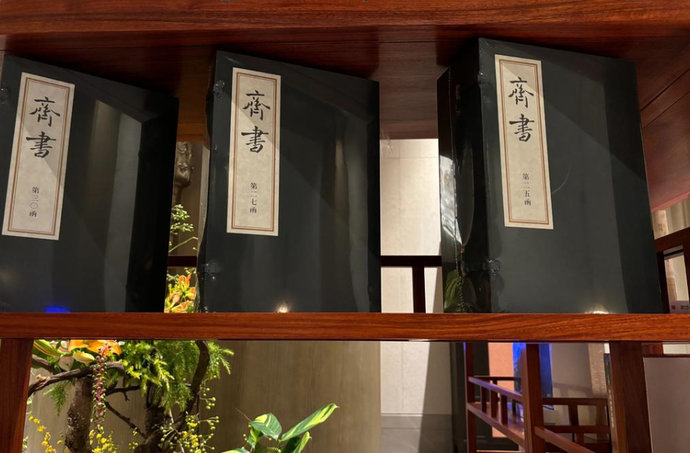 齊書
第三〇函
齊書
第二七函
齊書
第二五函